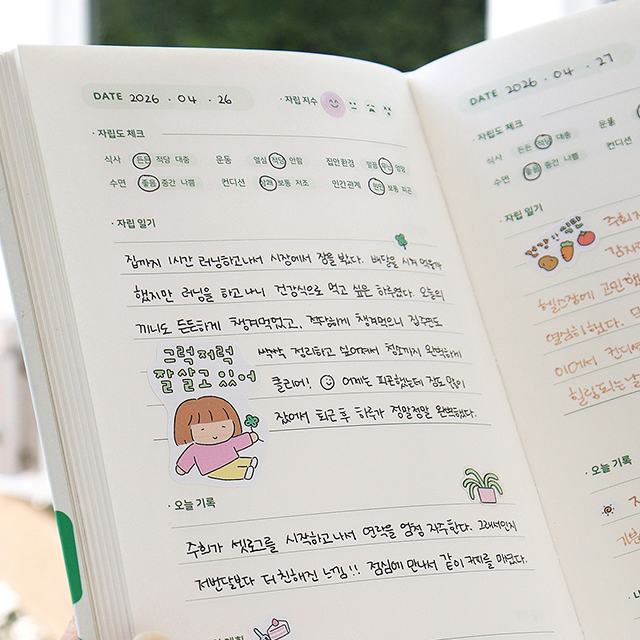 DATE 2026 · 04 · 26
· 자립 지수
· 자립도 체크
식사 든든 적당 대충 운동 열심 적당 안함 집안환경 깔끔 무난 엉망
수면 좋음 중간 나쁨 컨디션 상쾌 보통 저조 인간관계 원만 보통 피곤
· 자립 일기
집까지 1시간 러닝하고나서 시장에서 장을 봤다. 배달을 시켜
했지만 러닝을 하고 나니 건강식으로 먹고 싶은 하루였다. 오늘의
끼니도 든든하게 챙겨먹었고, 적당하게 챙겨먹으니 집주변도
싹싹 정리하고 싶어져서 청소까지 완벽하게
클리어! 어제는 피곤했는데 잠도 많이
잤어서 퇴근 후 하루가 정말정말 완벽했다.
그럭저럭
잘 살고 있어
· 오늘 기록
주희가 셋로그를 시작하고나서 연락을 엄청 자주한다. 그래서인지
저번달보다 더 친해진 느낌!! 점심에 만나서 같이 커피를 마셨다.
DATE 2026 · 04 · 27
· 자립도 체크
식사 든든 적당 대충 운동
수면 좋음 중간 나쁨 컨디션
· 자립 일기
주희
감자
헬스장에 고민했
열심히 했다.
이어서 컨디션
힐링되는 날
· 오늘 기록